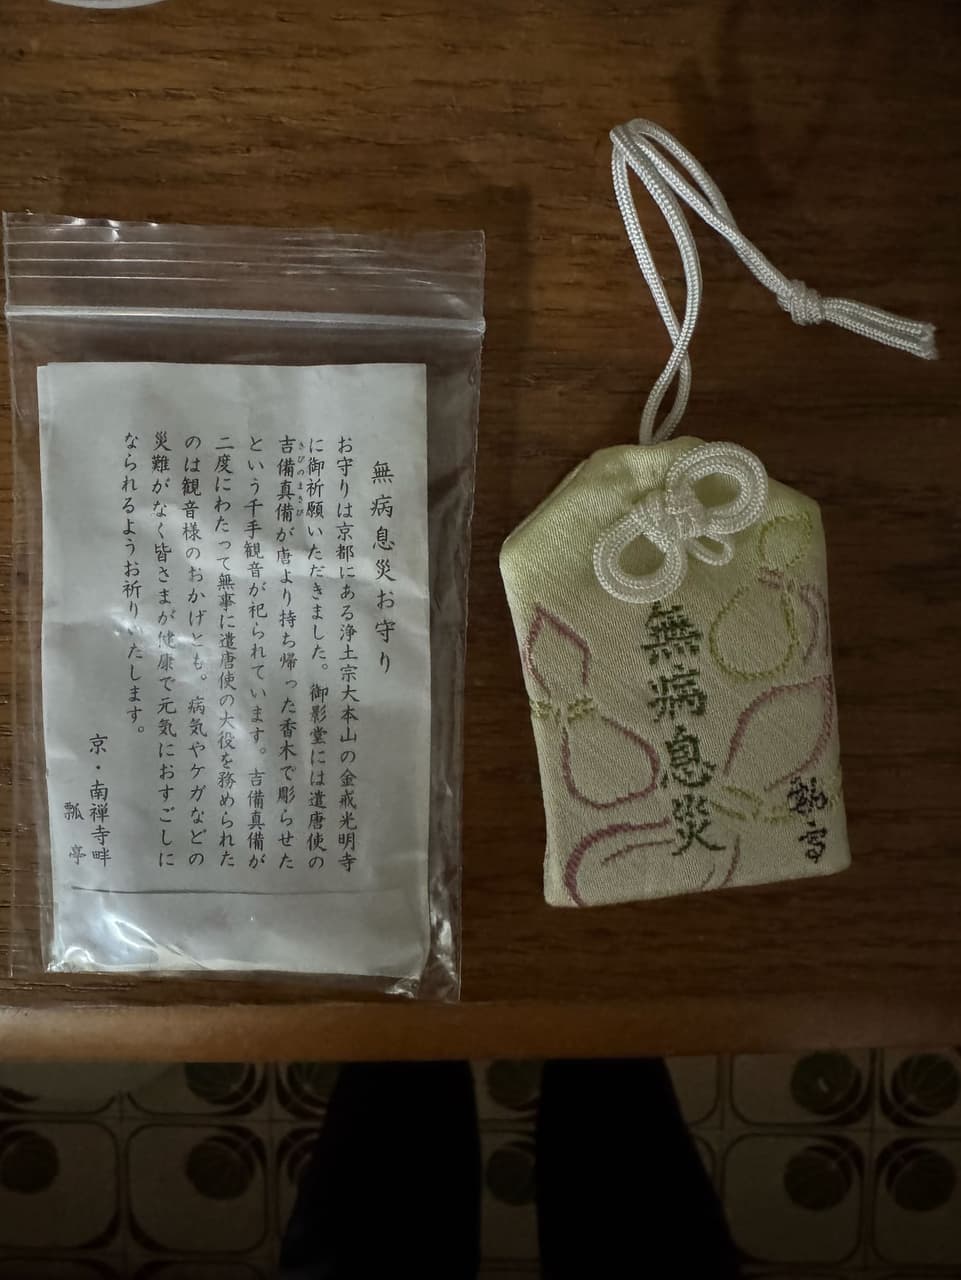 無病息災お守り
お守りは京都にある浄土宗大本山の金戒光明寺
に御祈願いただきました。御影堂には遣唐使の
吉備真備が唐より持ち帰った香木で彫らせた
きびのまきび
という千手観音が祀られています。吉備真備が
二度にわたって無事に遣唐使の大役を務められた
のは観音様のおかげとも。病気やケガなどの
災難がなく皆さまが健康で元気におすごしに
なられるようお祈りいたします。
京・南禅寺畔
瓢亭
無病息災